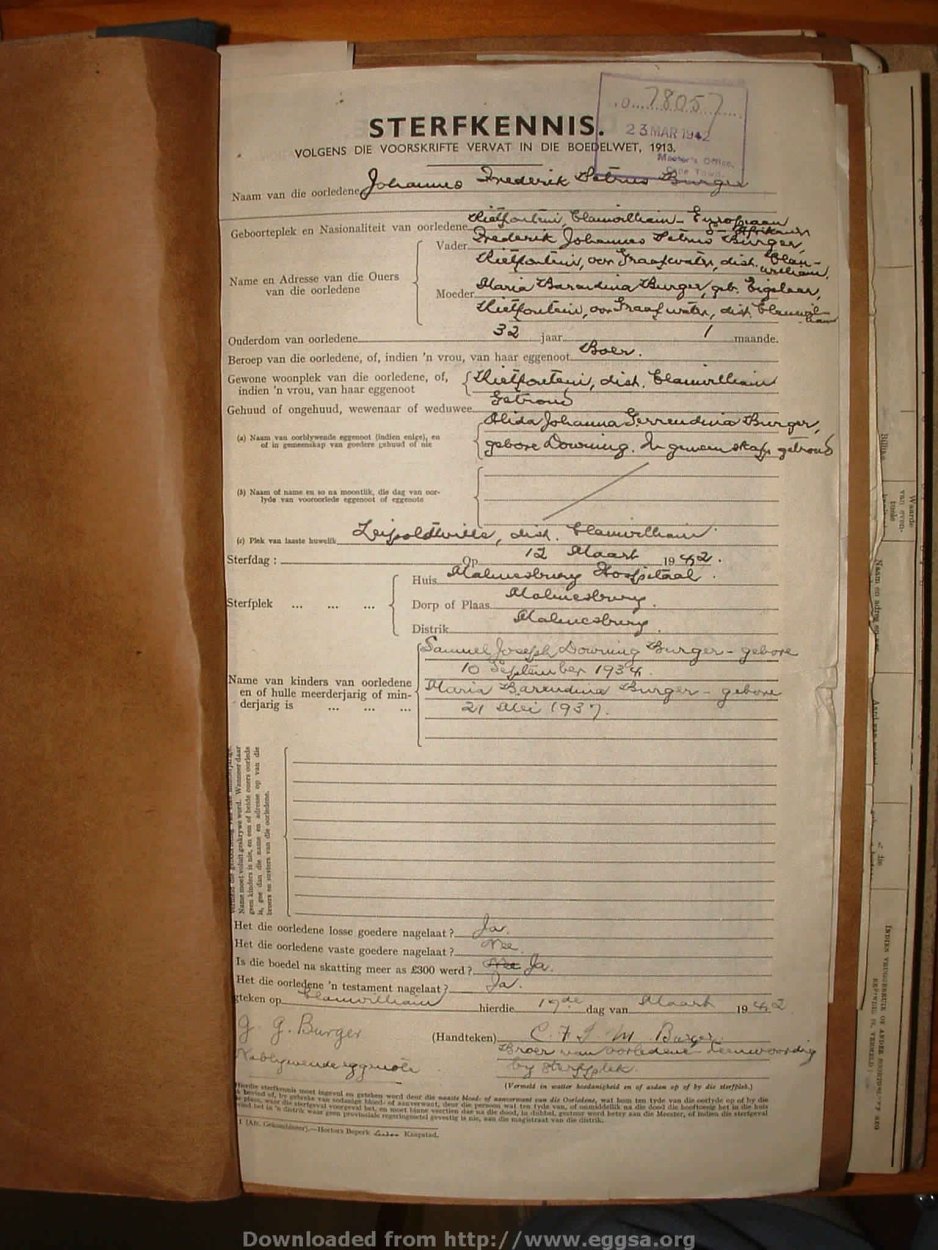 78057
STERFKENNIS.
23 MAR 1942
VOLGENS DIE VOORSKRIFTE VERVAT IN DIE BOEDELWET, 1913.
Master's Office,
Naam van die oorledene Johannes Frederik Petrus Burger
Geboorteplek en Nasionaliteit van oorledene Clanwilliam - Europeaan
S - Afrikaner
Name en Adresse van die Ouers van die oorledene
Vader Frederik Johannes Petrus Burger,
oor Graafwater, dist. Clan-
william
Moeder Maria Barendina Burger, geb. Engelaar,
oor Graafwater, dist. Clanwil-
liam
Ouderdom van oorledene 32 jaar 1 maande.
Beroep van die oorledene, of, indien 'n vrou, van haar eggenoot Boer.
Gewone woonplek van die oorledene, of, indien 'n vrou, van haar eggenoot dist. Clanwilliam
Gehuud of ongehuud, wewenaar of weduwee Getroud
(a) Naam van oorblywende eggenoot (indien enige), en of in gemeenskap van goedere gehuud of nie
Alida Johanna Gerrendina Burger,
gebore Downing. In gemeenskap getroud
(b) Naam of name en so na moontlik, die dag van oorlyde van vooroorlede eggenoot of eggenote
(c) Plek van laaste huwelik Leipoldtville, dist. Clanwilliam
Sterfdag : Op 12 Maart 1942.
Sterfplek ... ... ...
Huis Malmesbury Hospitaal.
Dorp of Plaas Malmesbury.
Distrik Malmesbury.
Name van kinders van oorledene en of hulle meerderjarig of minderjarig is ... ... ...
Samuel Joseph Downing Burger - gebore
10 September 1934.
Maria Barendina Burger - gebore
21 Mei 1937.
Name moet voluit geskrywe word. Wanneer daar
geen kinders is nie, en een of beide ouers oorlede
is, gee dan die name en adresse op van die
broers en susters van die oorledene.
Het die oorledene losse goedere nagelaat ? Ja.
Het die oorledene vaste goedere nagelaat ? Nee
Is die boedel na skatting meer as £300 werd ? Nee Ja.
Het die oorledene 'n testament nagelaat ? Ja.
geteken op Clanwilliam hierdie 17de dag van Maart 1942
J. G. Burger
Nablywende eggenote
(Handteken) C. F. J. M. Burger
Broer van oorledene - teenwoordig
by sterfplek.
(Vermeld in watter hoedanigheid en of asdan op of by die sterfplek.)
Hortors Beperk Kaapstad.
Downloaded from http://www.eggsa.org